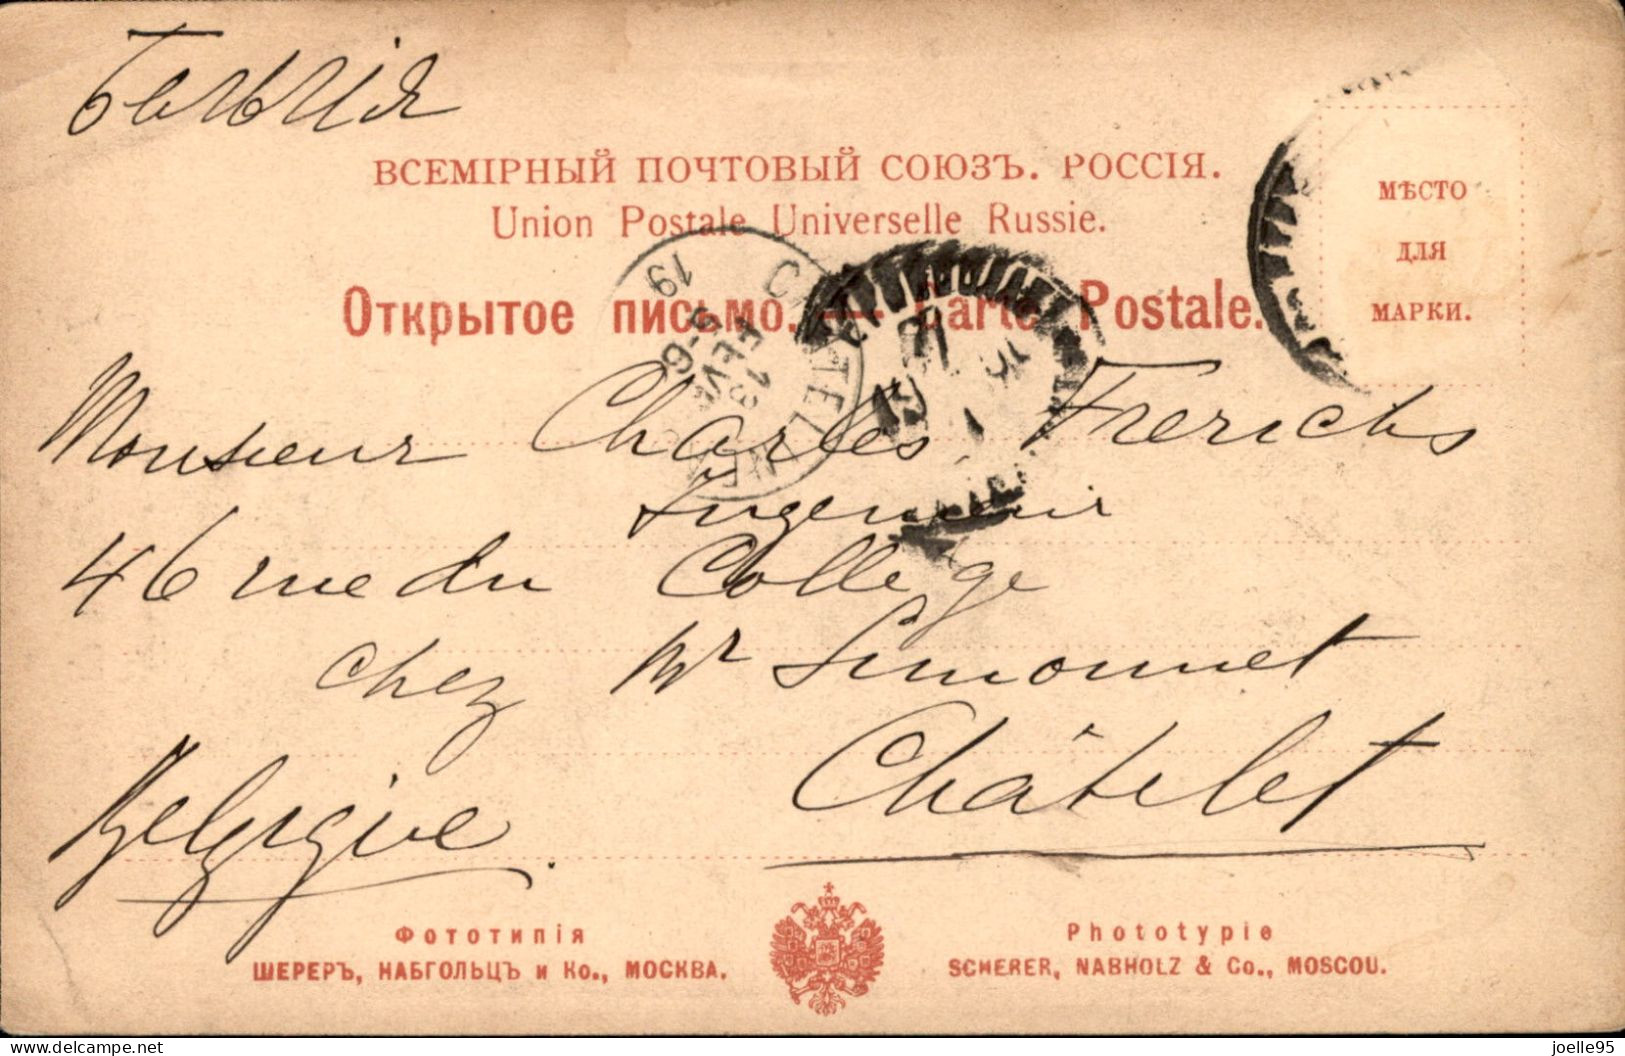 Бельгія
ВСЕМІРНЫЙ ПОЧТОВЫЙ СОЮЗЪ. РОССІЯ.
Union Postale Universelle Russie.
МѢСТО
ДЛЯ
МАРКИ.
Открытое письмо. — Carte Postale.
CHATELINEAU
19
5-6
13
FEVR
Monsieur Charles Frerichs
Ingenieur
46 rue du College
chez Mr Simonnet
Châtelet
Belgique.
Фототипія
ШЕРЕРЪ, НАБГОЛЬЦЪ и Ко., МОСКВА.
Phototypie
SCHERER, NABHOLZ & Co., MOSCOU.
delcampe.net
joelle95